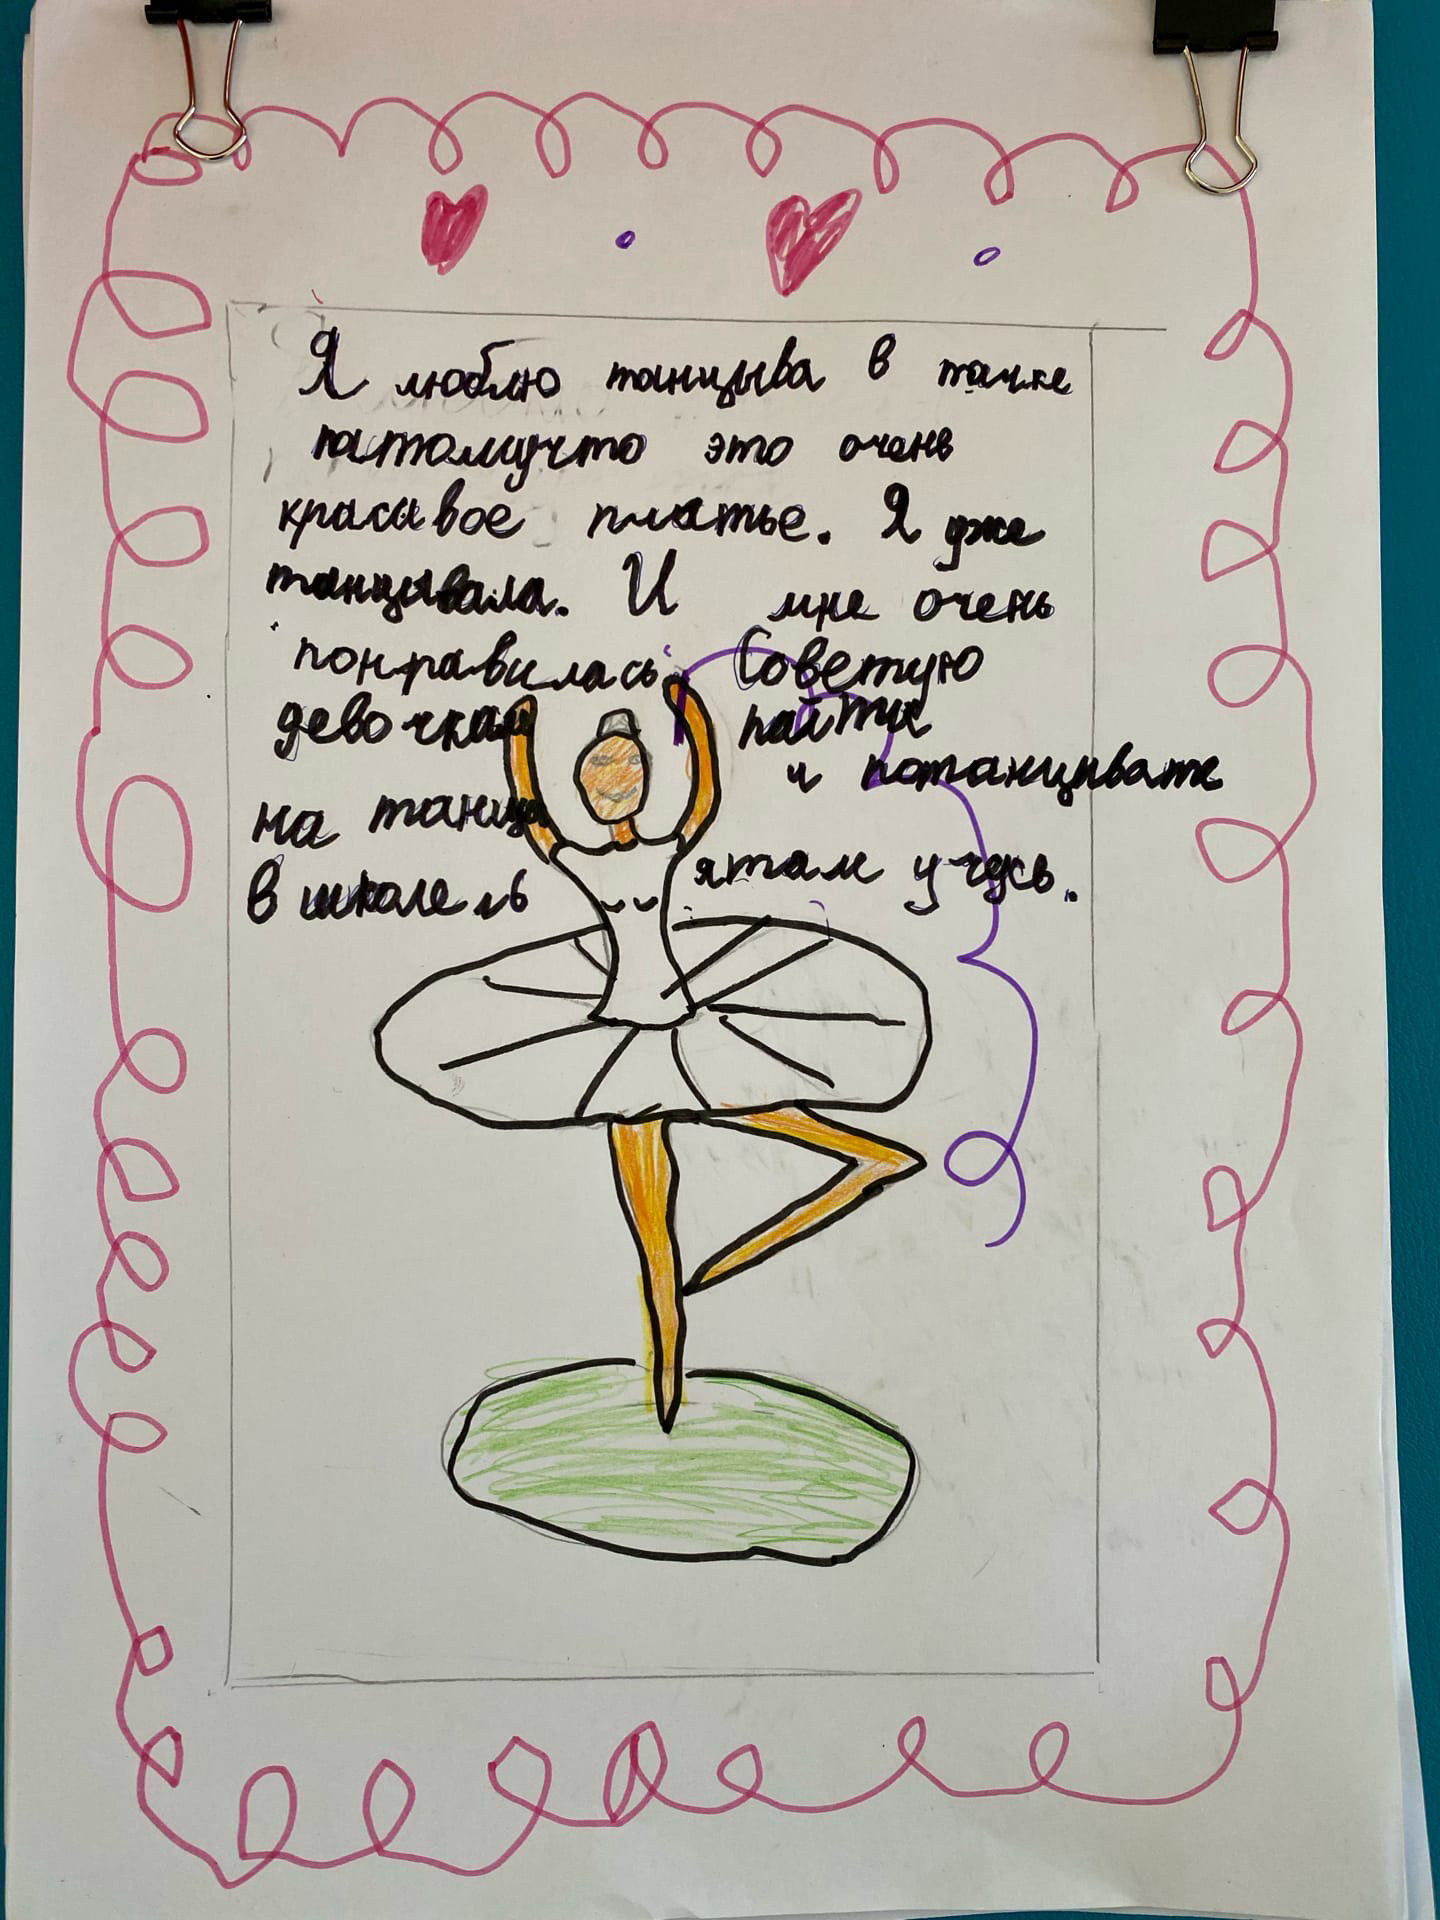 Я люблю танцыва в пачке
патомучто это очень
красивое платье. Я уже
танцывала. И мне очень
понравилась. Советую
девочкам пайти
на танцы и потанцывать
в школе я там учусь.